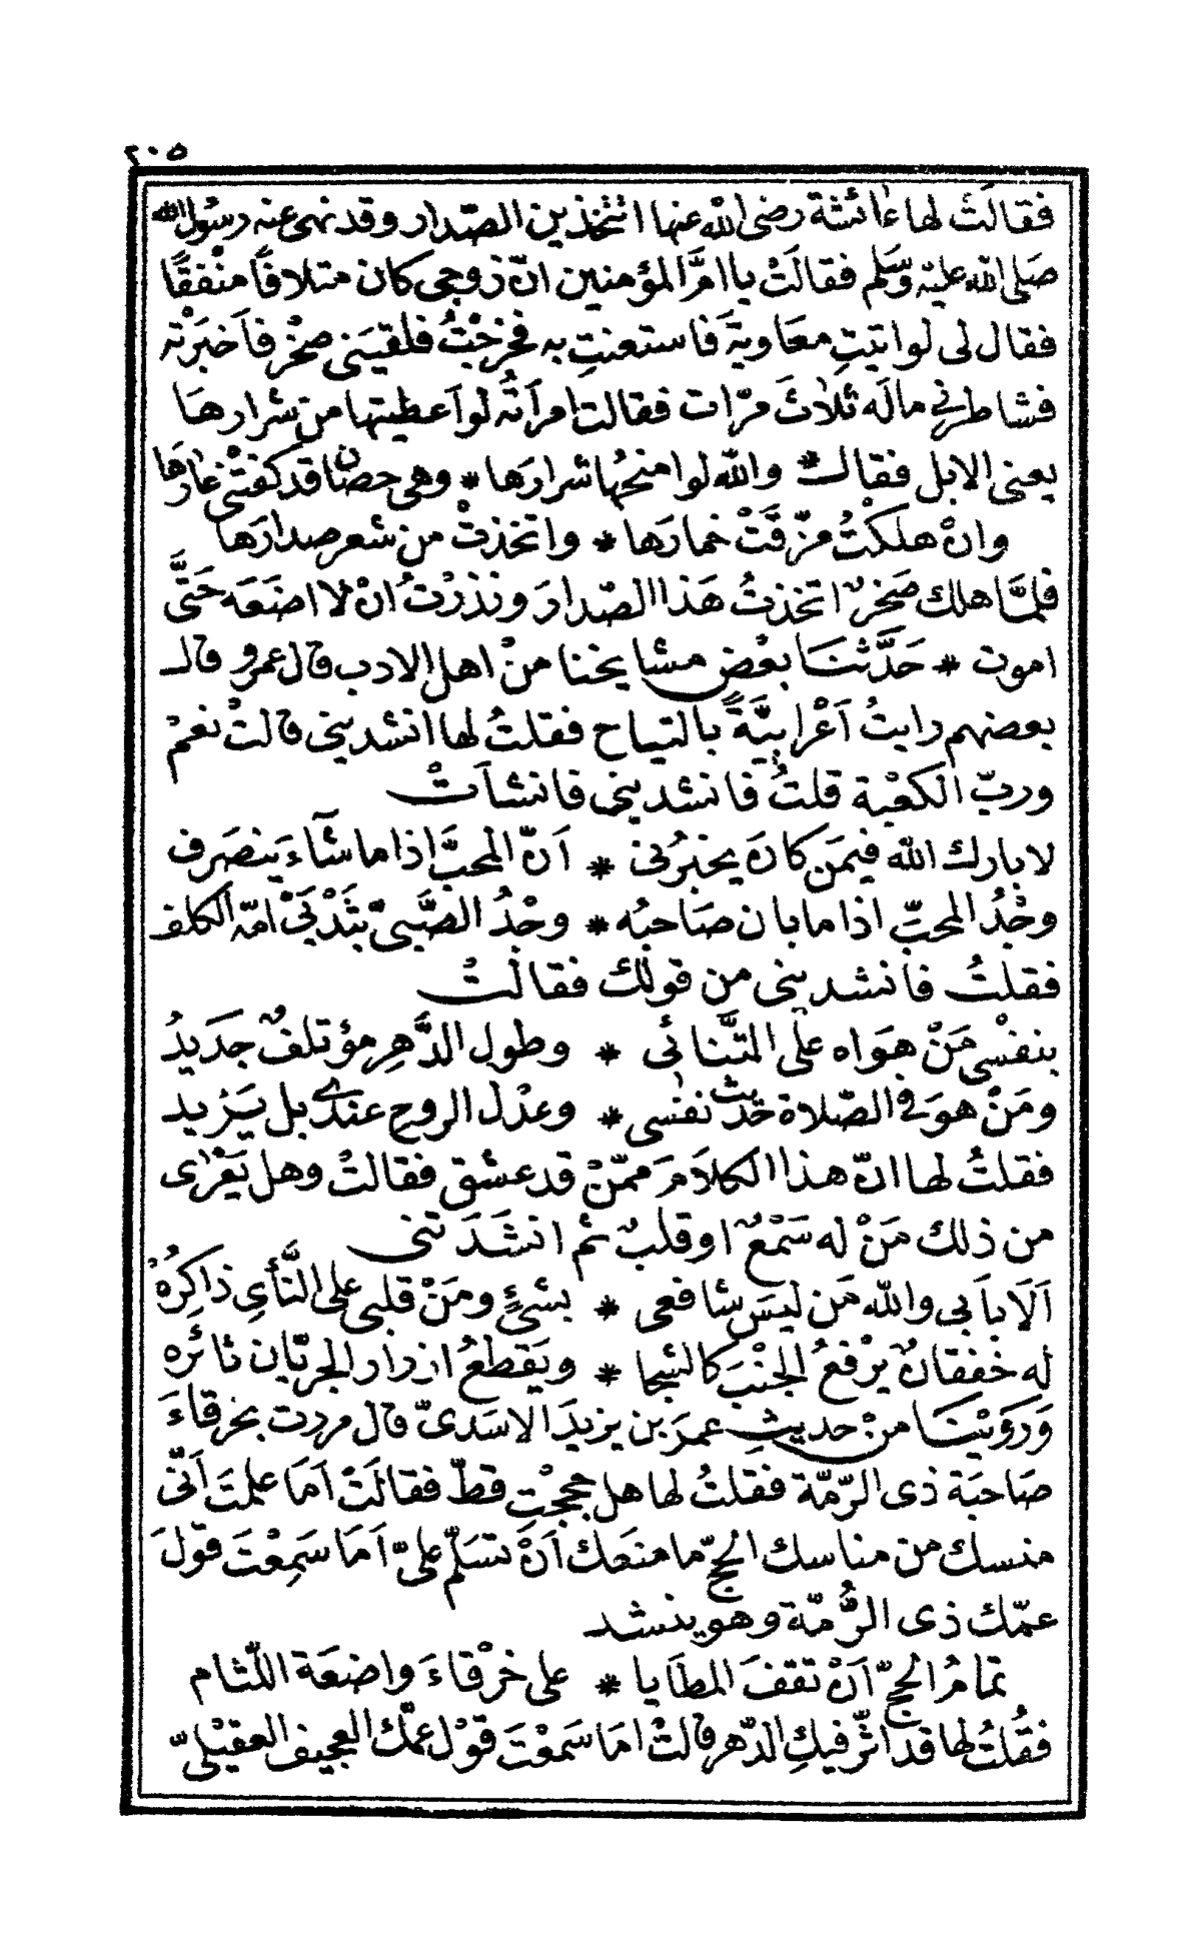 ٢٠٥
فقالَتْ لها عائشة رضى الله عنها اتتّخذين الصّدار وقد نهى عنه رسُول الله
صَلى الله عليْه وَسَّلم فقالَتْ يا امَّ المؤمنين انّ زوجى كان متلافاً منْفقًا
فقال لى لو اتيتِ معَاوية فَاستعنتِ به فخرجْتُ فلقيَنى صخْر فاَخبَرْته
فشاطرنى مالَه ثلاثَ مرّات فقالت امرأتُه لو اَعطيتها من شرارها
يعنى الابل فقال * والله لوا منحُها شرارَها * وهى حصَان قد كفتْنى عَارَها
وانْ هلكْتُ مزّقَتْ خمارَها * واتخذتْ من شعر صدارَها
فلمَّا هلك صَخرٌ اتخذتُ هَذا الصّدارَ ونذرْتُ انْ لا اضَعَه حَتَّى
اموت * حَدَّثنَا بعْض مشايخنا منْ اهل الادب قال عمرو قال
بعضهم رايتُ اَعْرابيَّةً بالتياح فقلتُ لها انشدينى قالتْ نعمْ
وربّ الكعْبة قلتُ فانشدينى فانشأتْ
لا بارك الله فيمَن كانَ يخبرُنى * اَنّ المحبَّ اذا ما شَآءَ ينصَرف
وجْدُ المحبِّ اذا ما بان صَاحبُه * وجْدُ الصَّبىّ بثَدْيَىْ امّه الكلف
فقلتُ فانشدينى من قولك فقالتْ
بنفْسى مَنْ هوَاه علَى التَّنائى * وطول الدَّهرِ مؤتلفٌ جَديدُ
ومَنْ هوَ فى الصّلاة حَديثُ نفسى * وعدْل الروح عندى بل يَزيد
فقلتُ لها انّ هذا الكلاَمَ ممّنْ قد عشق فقالتْ وهل يَعْرٰى
من ذلك مَنْ له سَمْعٌ اوقلبٌ ثم انشَدَتنى
اَلَا باَبى والله مَن ليسَ شافعى * بشىْءٍ ومَنْ قلبى على النَّأىِ ذاكِرُهْ
له خفقانٌ يرْفعُ الجنْبَ كالشجا * ويَقطعُ ازرار الجرِبّان ثائره
وَرَوَيْنَا منْ حديثِ عمرَ بن يزيدَ الاسَدىّ قال مررت بخرقاءَ
صَاحبَة ذى الرّمّة فقلتُ لها هل حججْتِ قطّ فقالَتْ اَمَا علمتَ اَنّى
منسك من مناسك الحجّ ما منَعك اَنْ تسَلّم علىّ اَمَا سَمِعْتَ قولَ
عمّك ذى الرُّمّة وهو ينشد
تمامُ الحجّ اَنْ تقفَ المطَايا * على خرْقاءَ واضعَة اللّثام
فقُلتُ لها قد اثّر فيكِ الدّهر قالتْ امَا سَمعْتَ قوْل عمّك العجيف العقيْلىّ